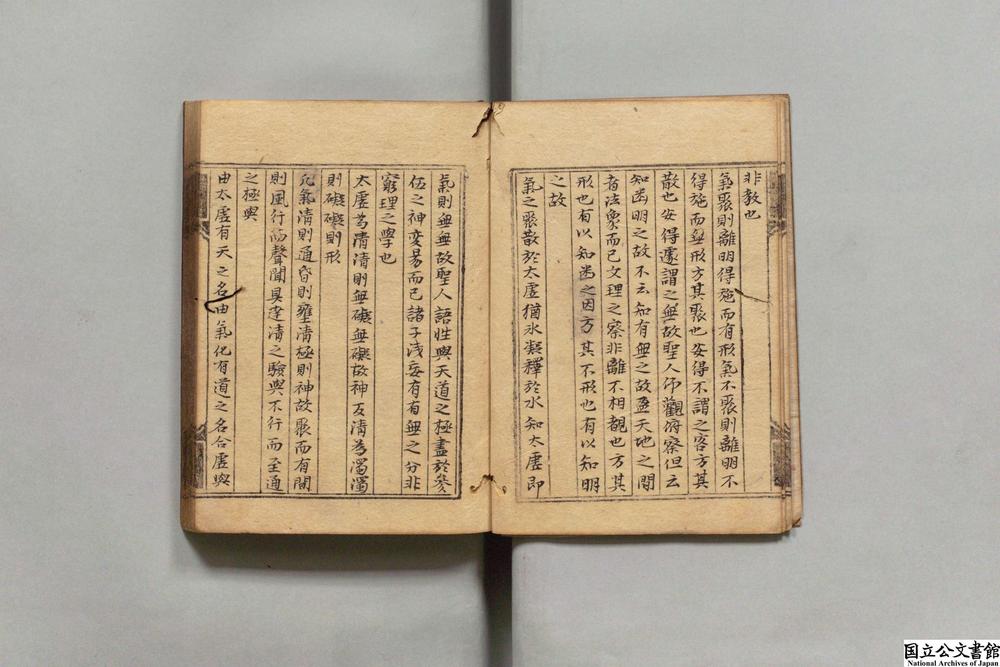 非教也
氣聚則離明得施而有形氣不聚則離明不
得施而無形方其聚也安得不謂之客方其
散也安得遽謂之無故聖人仰觀俯察但云
知幽明之故不云知有無之故盈天地之間
者法象而已文理之察非離不相覩也方其
形也有以知幽之因方其不形也有以知明
之故
氣之聚散於太虛猶氷凝釋於水知太虛即
氣則無無故聖人語性與天道之極盡於參
伍之神變易而已諸子浅妄有有無之分非
窮理之學也
太虛為清清則無礙無礙故神反清為濁濁
則礙礙則形
凡氣清則通昏則壅清極則神故聚而有間
則風行而聲聞具達清之驗與不行而至通
之極與
由太虛有天之名由氣化有道之名合虛與
国立公文書館
National Archives of Japan